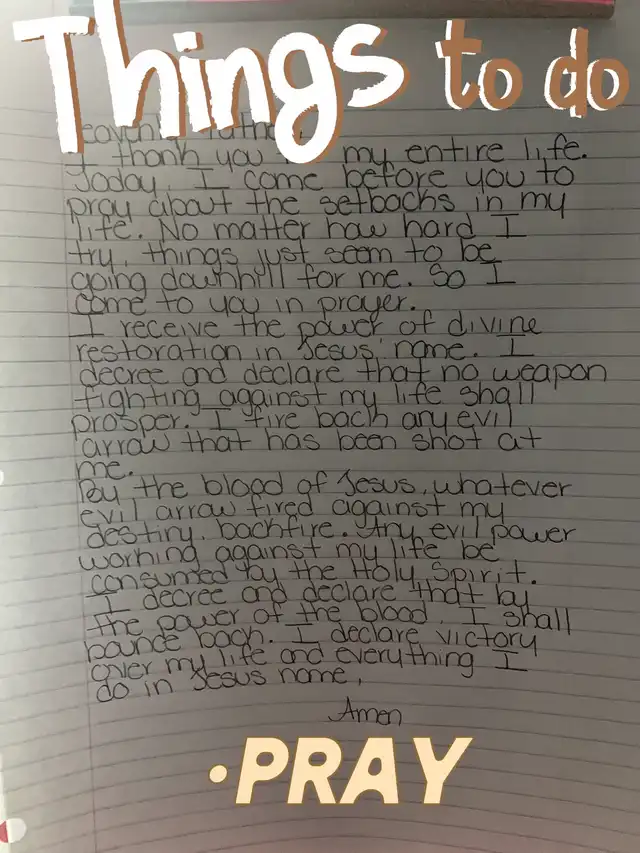 Things to do
I thank you my entire life.
Today, I come before you to
pray about the setbacks in my
life. No matter how hard I
try, things just seem to be
going downhill for me. So I
come to you in prayer.
I receive the power of divine
restoration in Jesus' name. I
decree and declare that no weapon
fighting against my life shall
prosper. I fire back any evil
arrow that has been shot at
me.
By the blood of Jesus, whatever
evil arrow fired against my
destiny, backfire. Any evil power
working against my life be
consumed by the Holy Spirit.
I decree and declare that by
the power of the blood, I shall
bounce back. I declare victory
over my life and everything I
do in Jesus name,
Amen
•PRAY